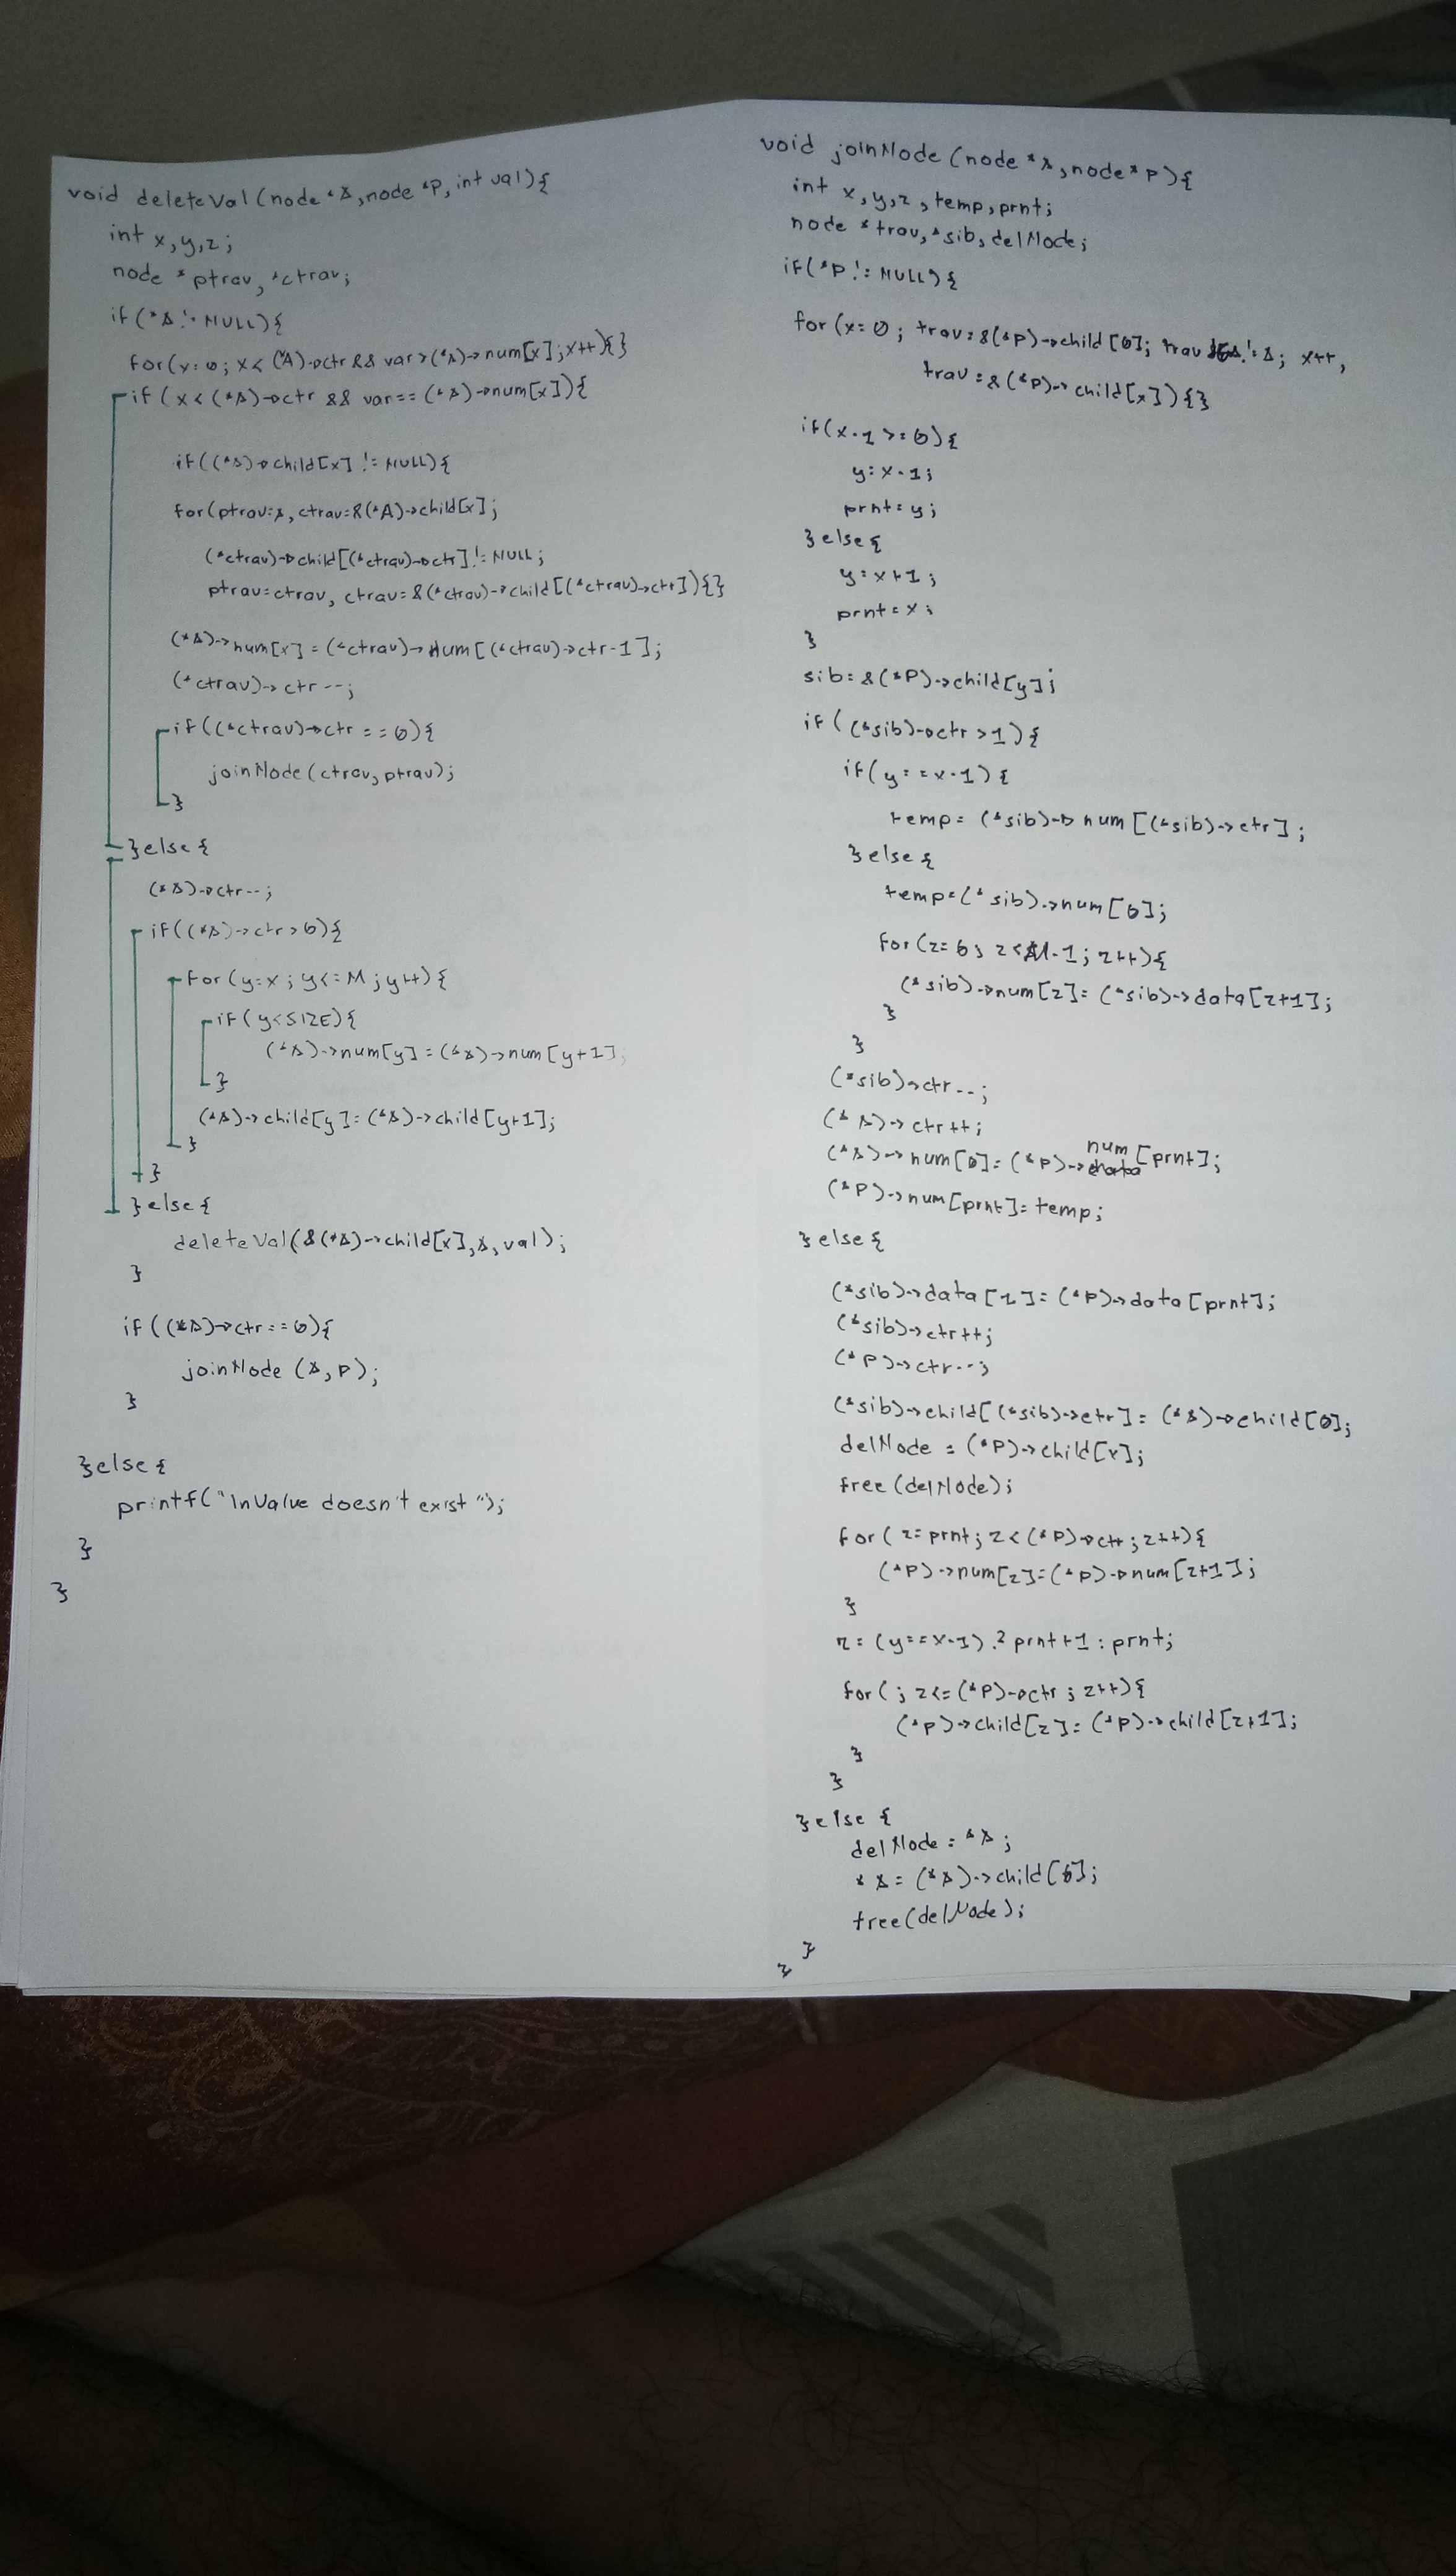 void deleteVal(node *A,node *P,int val){
int x,y,z;
node *ptrav,*ctrav;
if(*A != NULL){
for(x=0; x< (*A)->ctr && var>(*A)->num[x];x++){}
if(x<(*A)->ctr && var==(*A)->num[x]){
if((*A)->child[x] != NULL){
for(ptrav=A,ctrav=&(*A)->child[x];
(*ctrav)->child[(*ctrav)->ctr]!=NULL;
ptrav=ctrav, ctrav=&(*ctrav)->child[(*ctrav)->ctr]){}
(*A)->num[x]=(*ctrav)->num[(*ctrav)->ctr-1];
(*ctrav)->ctr--;
if((*ctrav)->ctr==0){
joinNode(ctrav,ptrav);
}
}else{
(*A)->ctr--;
if((*A)->ctr>0){
for(y=x;y<=M;y++){
if(y<SIZE){
(*A)->num[y]=(*A)->num[y+1];
}
(*A)->child[y]=(*A)->child[y+1];
}
}
}else{
deleteVal(&(*A)->child[x],A,val);
}
if((*A)->ctr==0){
joinNode(A,P);
}
}else{
printf("InValue doesn't exist");
}
}
void joinNode(node *A,node*P){
int x,y,z,temp,prnt;
node *trav,*sib,delNode;
if(*P != NULL){
for(x=0; trav=&(*P)->child[0]; trav != A; x++,
trav=&(*P)->child[x]){}
if(x-1>=0){
y=x-1;
prnt=y;
}else{
y=x+1;
prnt=x;
}
sib=&(*P)->child[y];
if((*sib)->ctr>1){
if(y==x-1){
temp=(*sib)->num[(*sib)->ctr];
}else{
temp=(*sib)->num[0];
for(z=0; z<M-1; z++){
(*sib)->num[z]=(*sib)->data[z+1];
}
}
(*sib)->ctr--;
(*A)->ctr++;
(*A)->num[0]=(*P)->num[prnt];
(*P)->num[prnt]=temp;
}else{
(*sib)->data[1]=(*P)->data[prnt];
(*sib)->ctr++;
(*P)->ctr--;
(*sib)->child[(*sib)->ctr]=(*A)->child[0];
delNode=(*P)->child[x];
free(delNode);
for(z=prnt;z<(*P)->ctr;z++){
(*P)->num[z]=(*P)->num[z+1];
}
z=(y==x-1)?prnt+1:prnt;
for(;z<=(*P)->ctr;z++){
(*P)->child[z]=(*P)->child[z+1];
}
}
}else{
delNode=*A;
*A=(*A)->child[0];
free(delNode);
}
}